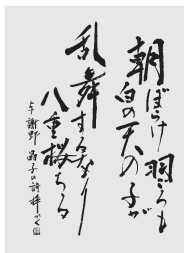 朝ぼらけ羽ごろも
白の天の子が
乱舞する笑なり
八重桜ちる
与謝野晶子の詩 梓かく